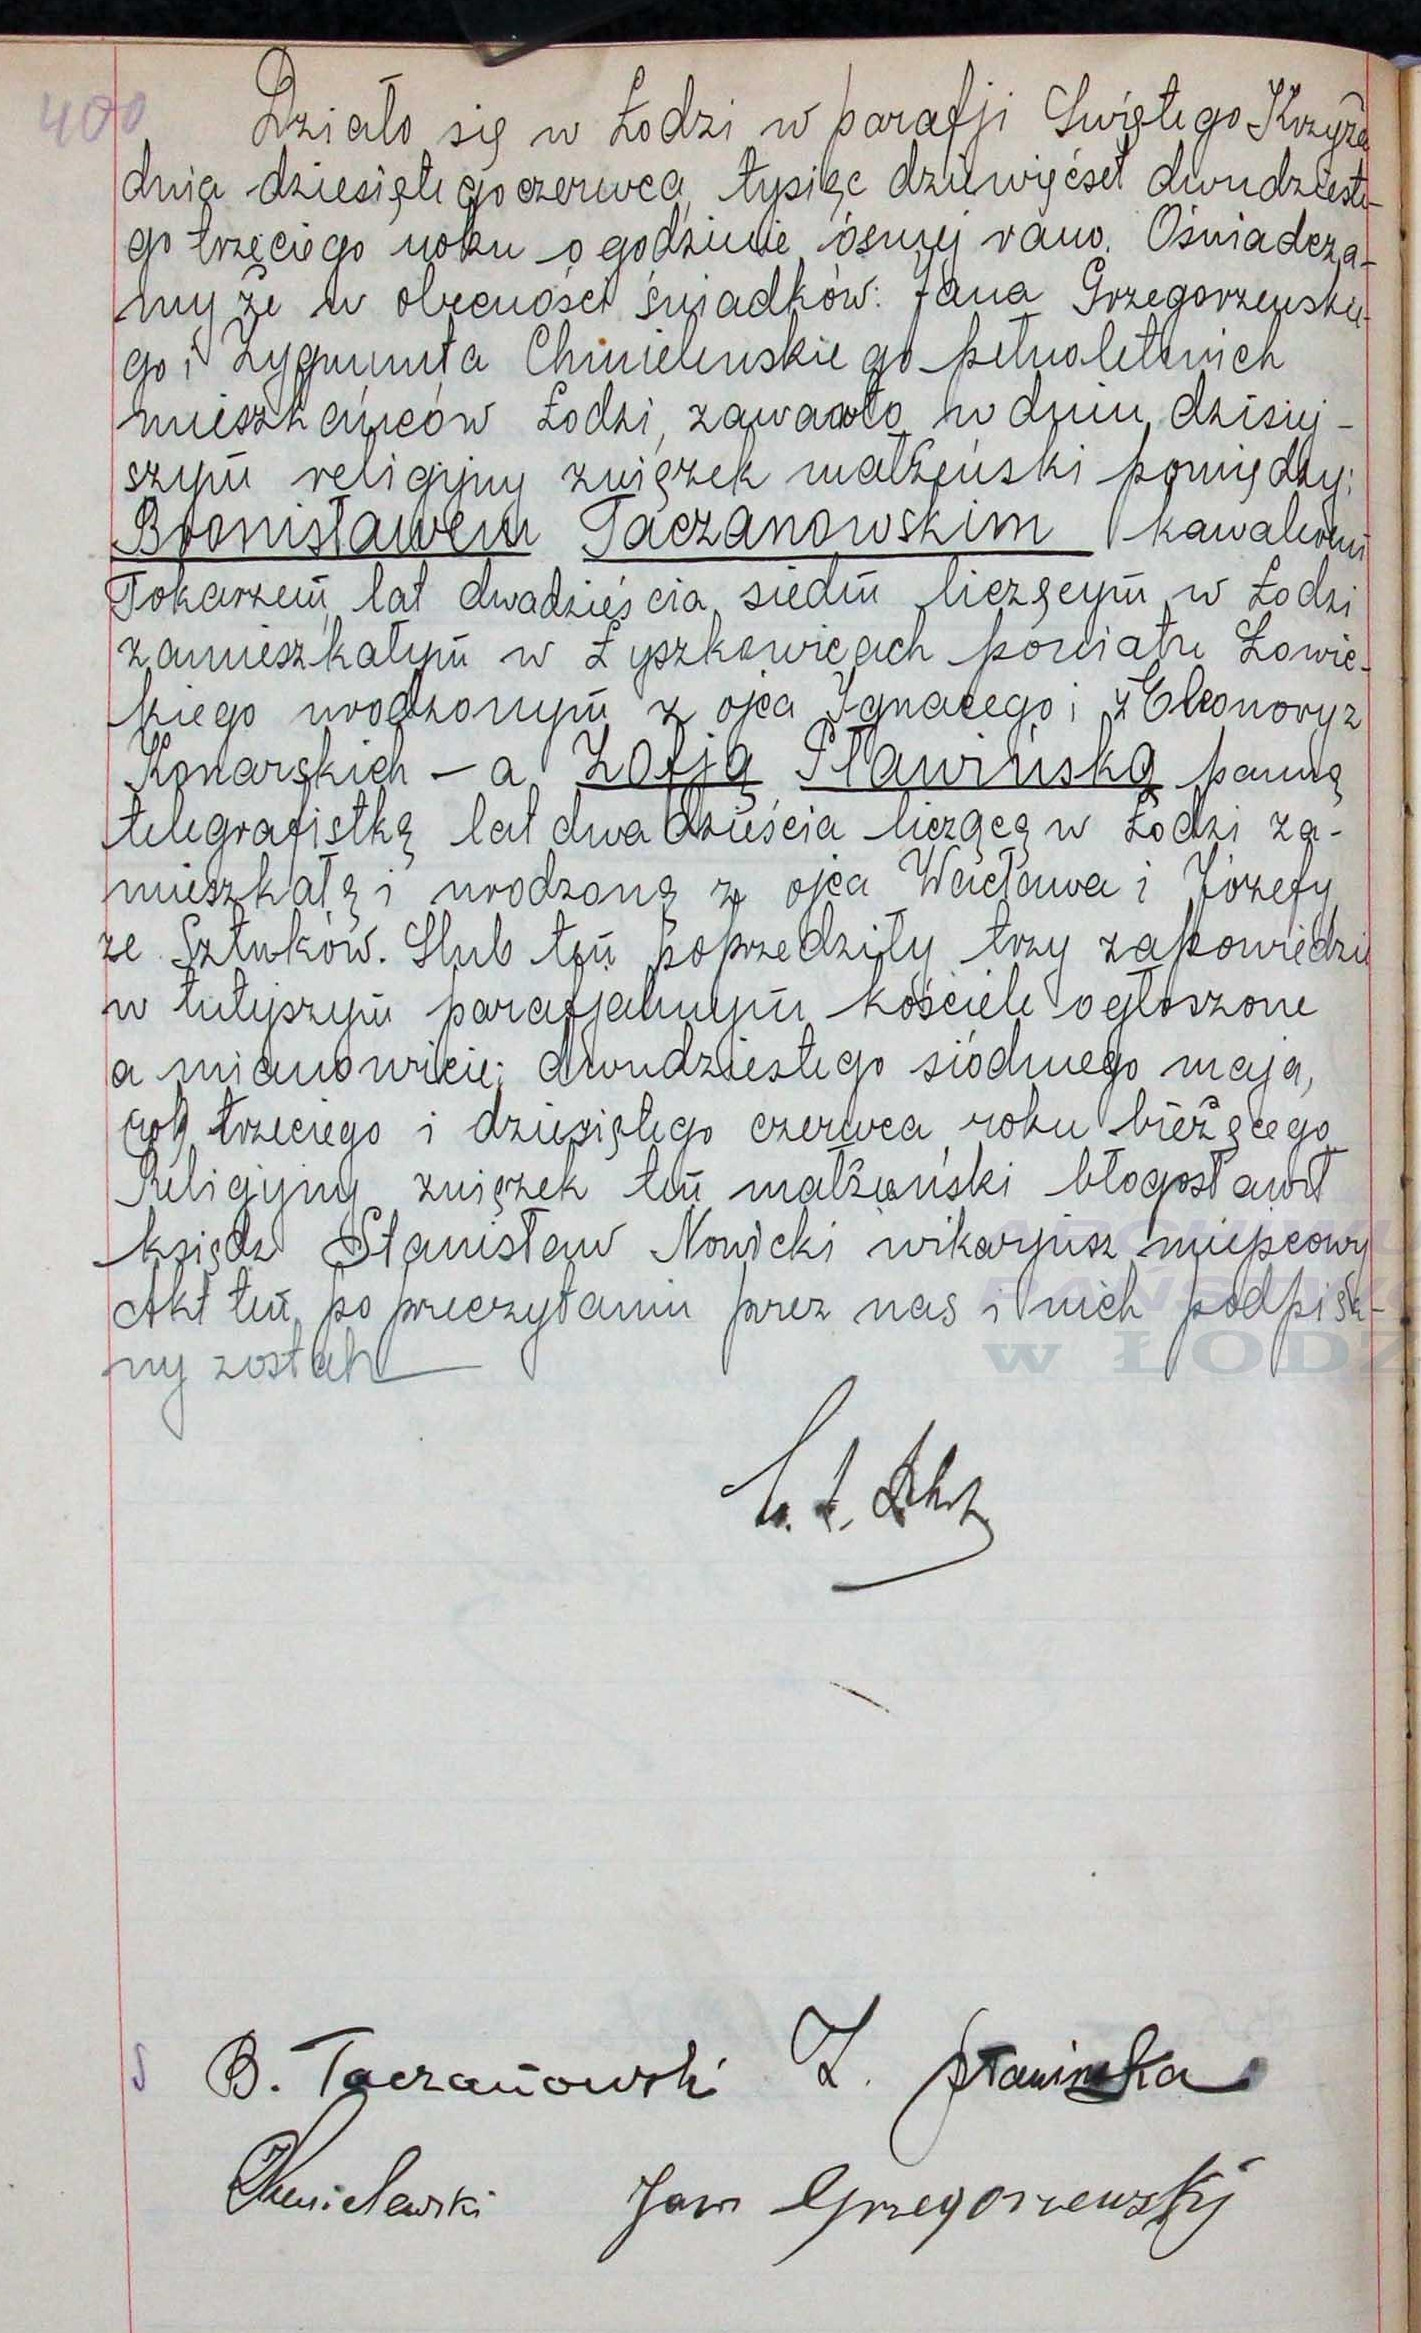 400
Działo się w Łodzi w parafji Świętego Krzyża
dnia dziesiątego czerwca, tysiąc dziewięćset dwudzieste-
go trzeciego roku o godzinie ósmej rano. Oświadcza-
my że w obecności świadków: Jana Grzegorzewskie-
go i Zygmunta Chmielewskiego pełnoletnich
mieszkańców Łodzi, zawarto w dniu dzisiej-
szym religijny związek małżeński pomiędzy:
Bronisławem Taczanowskim kawalerem
Tokarzem, lat dwadzieścia siedm liczącym w Łodzi
zamieszkałym w Łyszkowicach powiatu Łowic-
kiego urodzonym z ojca Ignacego i z Eleonory z
Konarskich – a Zofją Pławińską panną
telegrafistką lat dwadzieścia liczącą w Łodzi za-
mieszkałą i urodzoną z ojca Wacława i Józefy
ze Sztuków. Ślub ten poprzedziły trzy zapowiedzi
w tutejszym parafjalnym kościele ogłoszone
a mianowicie; dwudziestego siódmego maja,
trzeciego i dziesiątego czerwca roku bieżącego
Religijny związek ten małżeński błogosławił
ksiądz Stanisław Nowicki wikaryusz miejscowy
Akt ten po przeczytaniu przez nas i nich podpisa-
ny został
B. Taczanowski Z. Pławińska
Chmielewski Jan Grzegorzewski
w ŁODZ